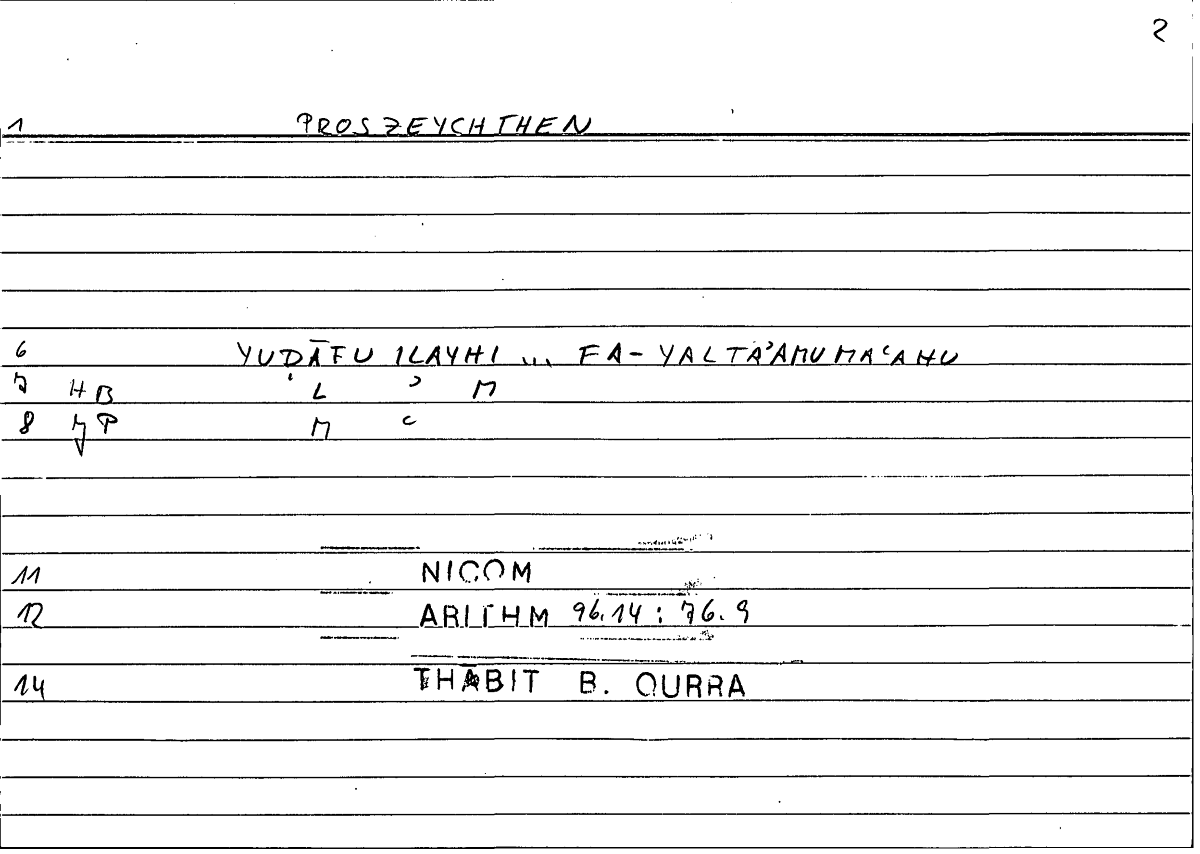 2
1 PROSZEYCHTHEN
6 YUḌĀFU ILAYHI ... FA-YALTAʾAMU MAʿAHU
7 HB L ʾ M
8 P M ʿ
11 NICOM
12 ARITHM 96.14 : 76.9
14 THĀBIT B. QURRA